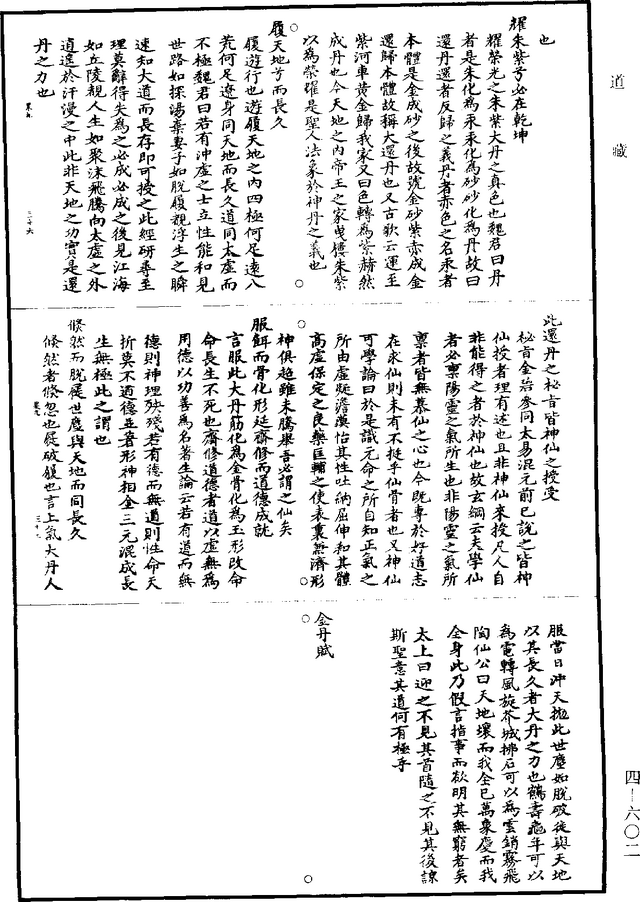 道藏
也
耀朱紫兮必在乾坤
耀榮光之朱紫大丹之真色也魏君曰丹
者是朱化為汞汞化為砂砂化為丹故曰
還丹還者反歸之義丹者赤色之名汞者
本體是金成砂之後故號金砂紫赤成金
還歸本體故稱大還丹也又古歌云運至
紫河車黃金歸我家又曰色轉為紫赫然
成丹也今天地之內帝王之家曳樓朱紫
以為榮耀是聖人法象於神丹之義也
履天地兮而長久
履遊行也遊履天地之內四極何足遠八
荒何足遼身同天地而長久道同太虛而
不極魏君曰若有沖虛之士立性能和見
世路如探湯棄妻子如脫履覩浮生之瞬
速知大道而長存即可授之此經研尋至
理莫辭得失為之必成必成之後見江海
如丘陵覩人生如聚沫飛騰向太虛之外
逍遙於汗漫之中此非天地之功實是還
丹之力也
此還丹之秘旨皆神仙之授受
秘旨金冶參同太易混元前已說之皆神
仙授者理有述也且非神仙來授凡人自
非能得之者於神仙也故玄綱云夫學仙
者必稟陽靈之氣所生也非陽靈之氣所
稟者皆無慕仙之心也今既專於好道志
在求仙則未有不挺乎仙骨者也又神仙
可學論曰於是識元命之所自知正氣之
所由虛凝澹漠怡其性吐納屈伸和其體
高虛保定之良藥匡輔之使表裏兼濟形
神俱超雖未騰舉吾必謂之仙矣
服餌而骨化形延齋修而道德成就
言服此大丹筋化為金骨化為玉形改命
命長生不死也齋修道德者道以虛無為
用德以功善為名著生論云若有道而無
德則神理殃殘若有德而無道則性命夭
折莫不道德並著形神相全三元混成長
生無極此之謂也
倏然而脫屣世塵與天地而同長久
倏然者倏忽也屣破履也言上氣大丹人
服當日沖天拋此世塵如脫破屣與天地
以其長久者大丹之力也鶴壽龜年可以
為電轉風旋芥城拂石可以為雲銷霧飛
陶仙公曰天地壞而我全已萬象慶而我
全身此乃假言指事而欲明其無窮者矣
太上曰迎之不見其首隨之不見其後諒
斯聖意其道何有極乎
金丹賦
四–六〇二